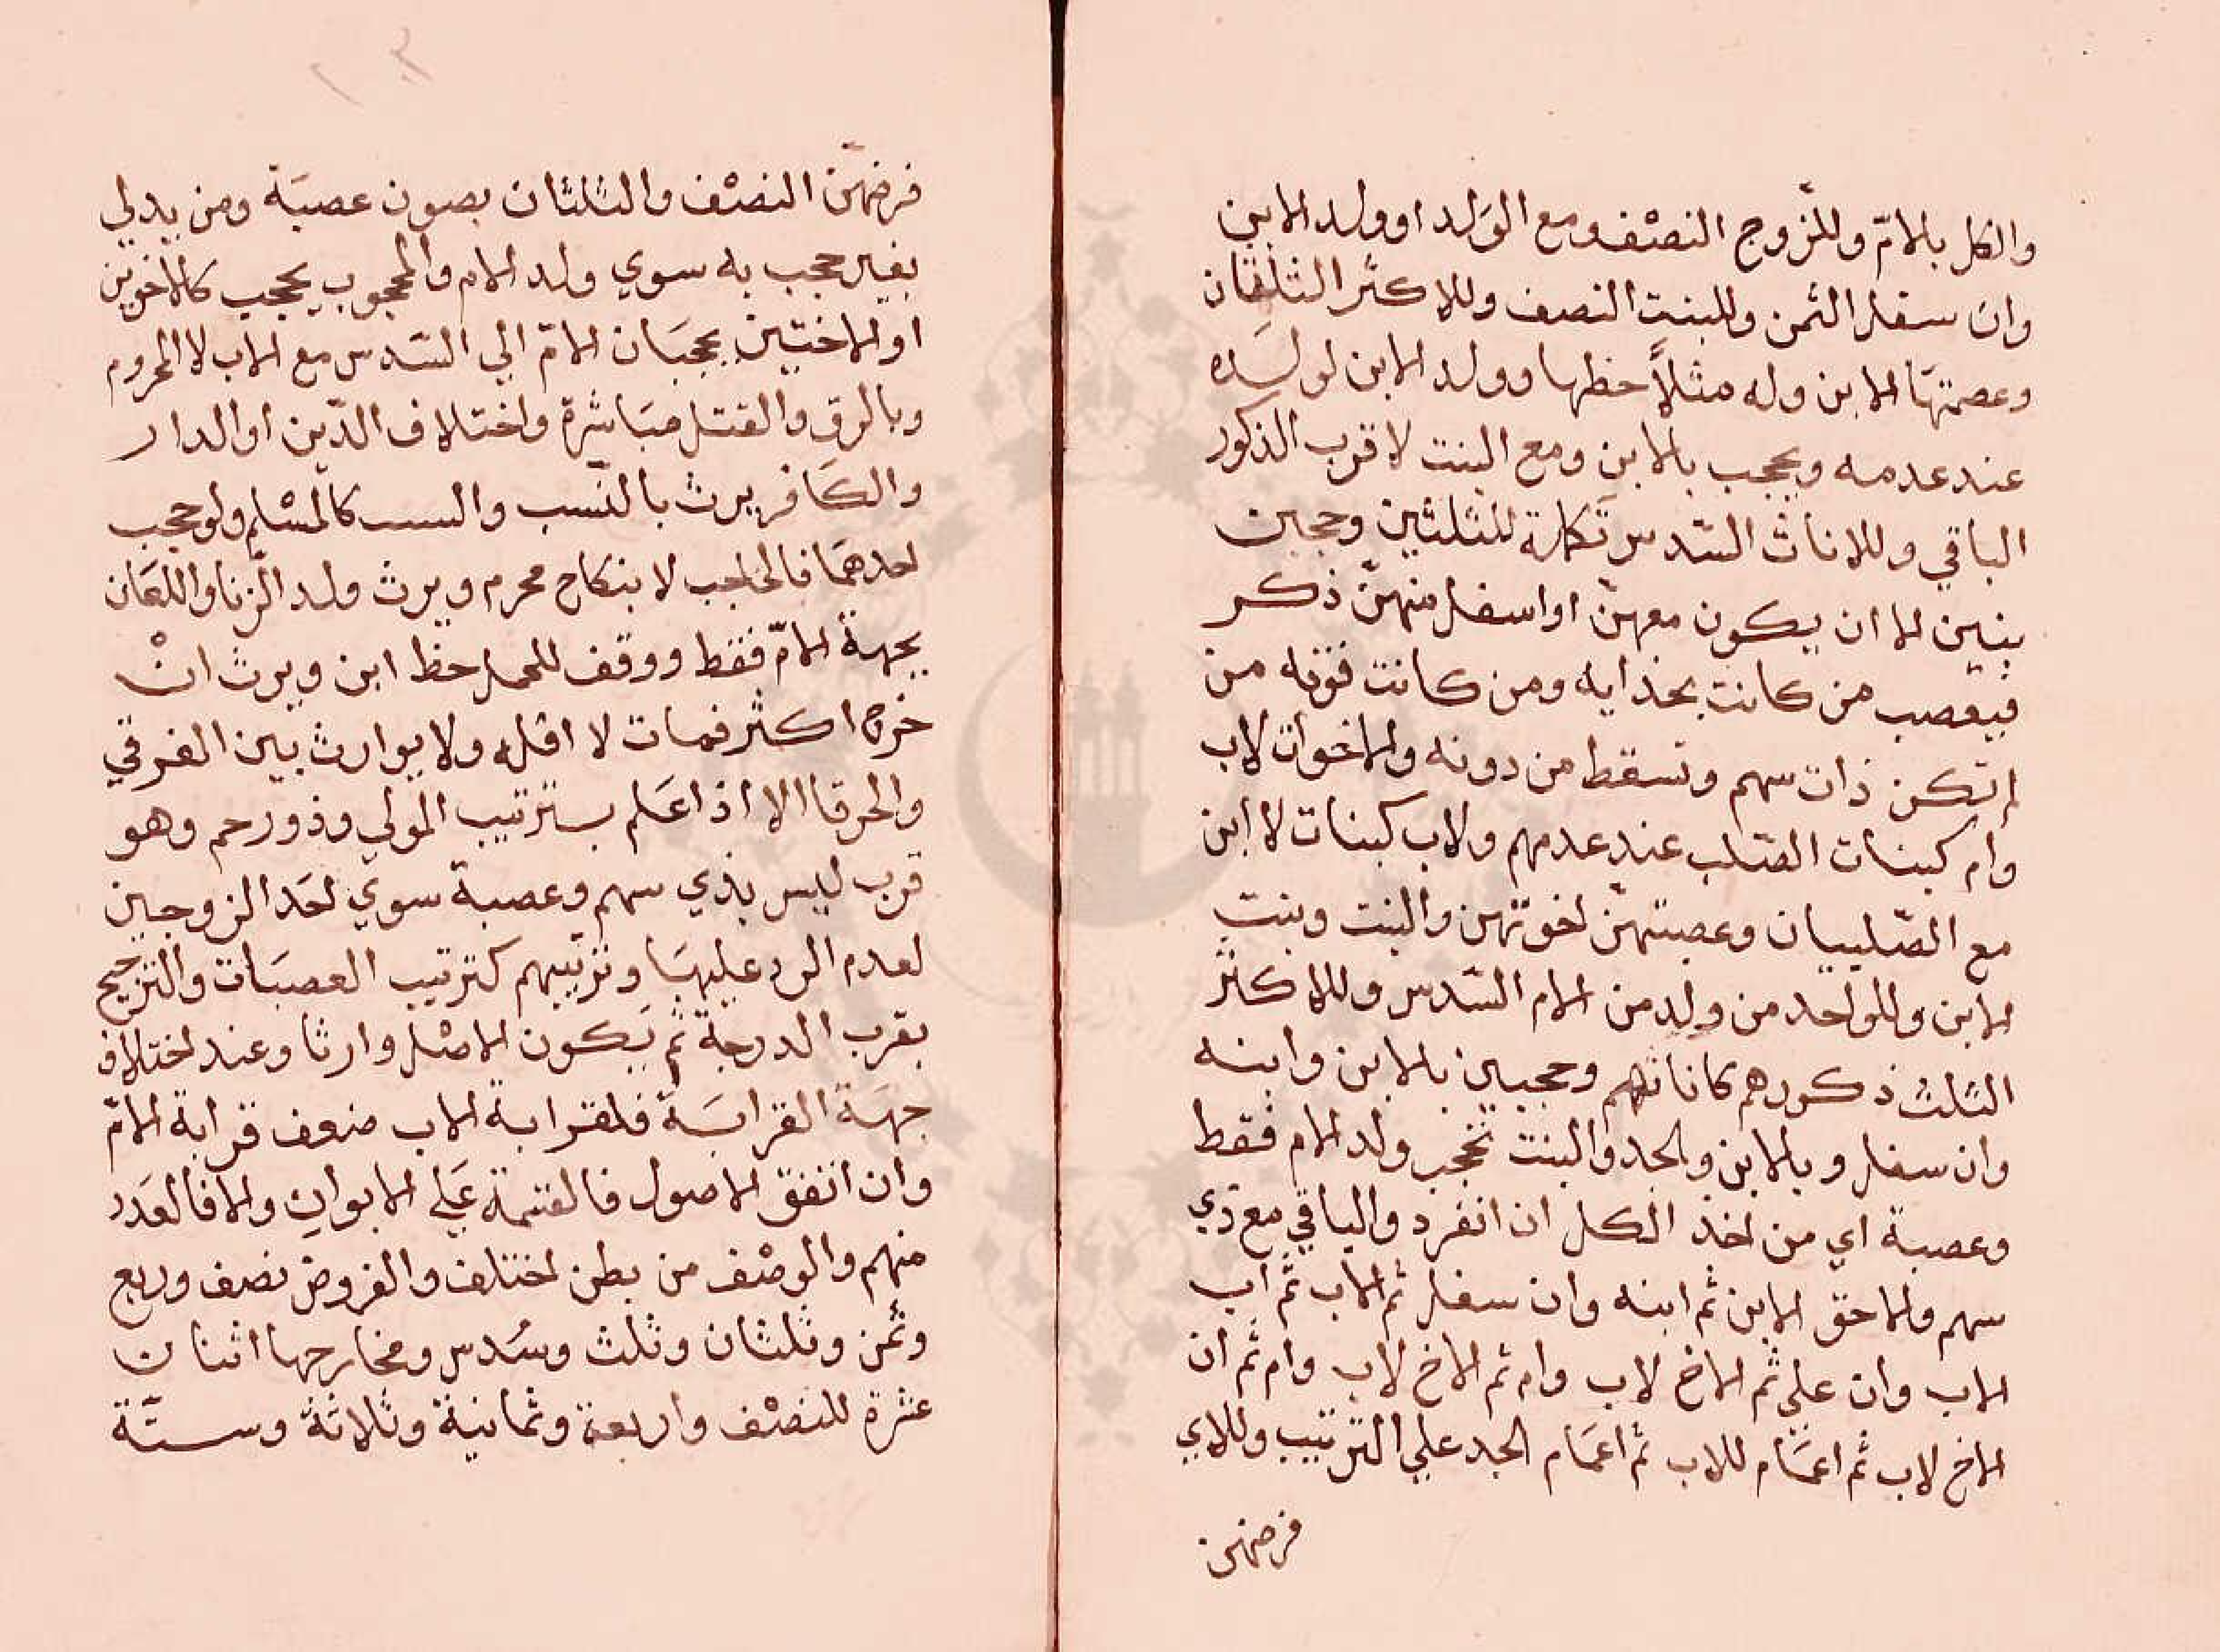 والكل بالامّ وللزّوج النصْف ومع الوَلد او ولد الابن
وان سفل الثمن وللبنت النصف وللاكثر الثلثان
وعصبتهَا الابن وله مثلاً حظها وولد الابن لولَده
عند عدمه ويحجب بالابن ومع البنت لاقرب الذكور
الباقي وللاناث السّدس تَكملة للثلثين وحجبن
بنين الا ان يكون معهنّ او اسفل منهنّ ذكر
فيعصب من كانت بحذايه ومن كانت فوقه من
لم تكن ذات سهم وتسقط من دونه والاخوات لاب
وام كبنات الصّلب عند عدمهم ولاب كبنات لابن
مع الصّلبيان وعصبتهنّ اخوتهن والبنت وبنت
الابن وللواحد من ولد من الام السّدس وللاكثر
الثلث ذكورهم كاناثهم وحجبين بالابن وابنه
وان سفل وبالابن والجد والبنت تحجب ولد الام فقط
وعصبة اي من اخذ الكل ان انفرد والباقي مع ذي
سهم والاحق الابن ثم ابنه وان سفل ثم الاب ثم اب
الاب وان علي ثم الاخ لاب وام ثم الاخ لاب وام ثم ان
الاخ لاب ثم اعمَام للاب ثم اعمَام الجد علي الترتيب وللاي
فرضهن
فرضهنّ النصْف والثلثان بصون عصبَة ومن يدلي
بغير حجب به سوي ولد الام والمحجوب يحجب كالاخوين
او الاختين يحجبَان الامّ الي السّدس مع الاب لا المحروم
وبالرق والقتل مبَاشرة واختلاف الدّين او الدار
والكَافر يرث بالنّسب والسبب كالمسْلم ولو حجب
احدهمَا فالحاجب لا بنكاح محرم ويرث ولد الزّنا واللعَان
بجهة الامّ فقط ووقف للحمل حظ ابن ويرث انْ
خرج اكثر فمات لا اقله ولا يوارث بين الغرقي
والحرقا الا اذا عَلم بترتيب المولي وذو رحم وهو
قرب ليس بذي سهم وعصبة سوي احَد الزوجين
لعدم الرد عليهمَا وترتيبهم كترتيب العصبَات والترجيح
بقرب الدرجة ثم يَكون الاصْل وارثا وعند اختلاف
جهَة القرابَة فلقرابة الاب ضعف قرابة الامّ
وان اتفق الاصول فالقسمة عَلي الابوان والا فالعَدد
منهم والوصْف من بطن اختلف والفروض نصف وربع
وثمن وثلثان وثلث وسُدس ومخارجها اثنان
عشرة للنصْف واربعة وثمانية وثلاثة وستّة